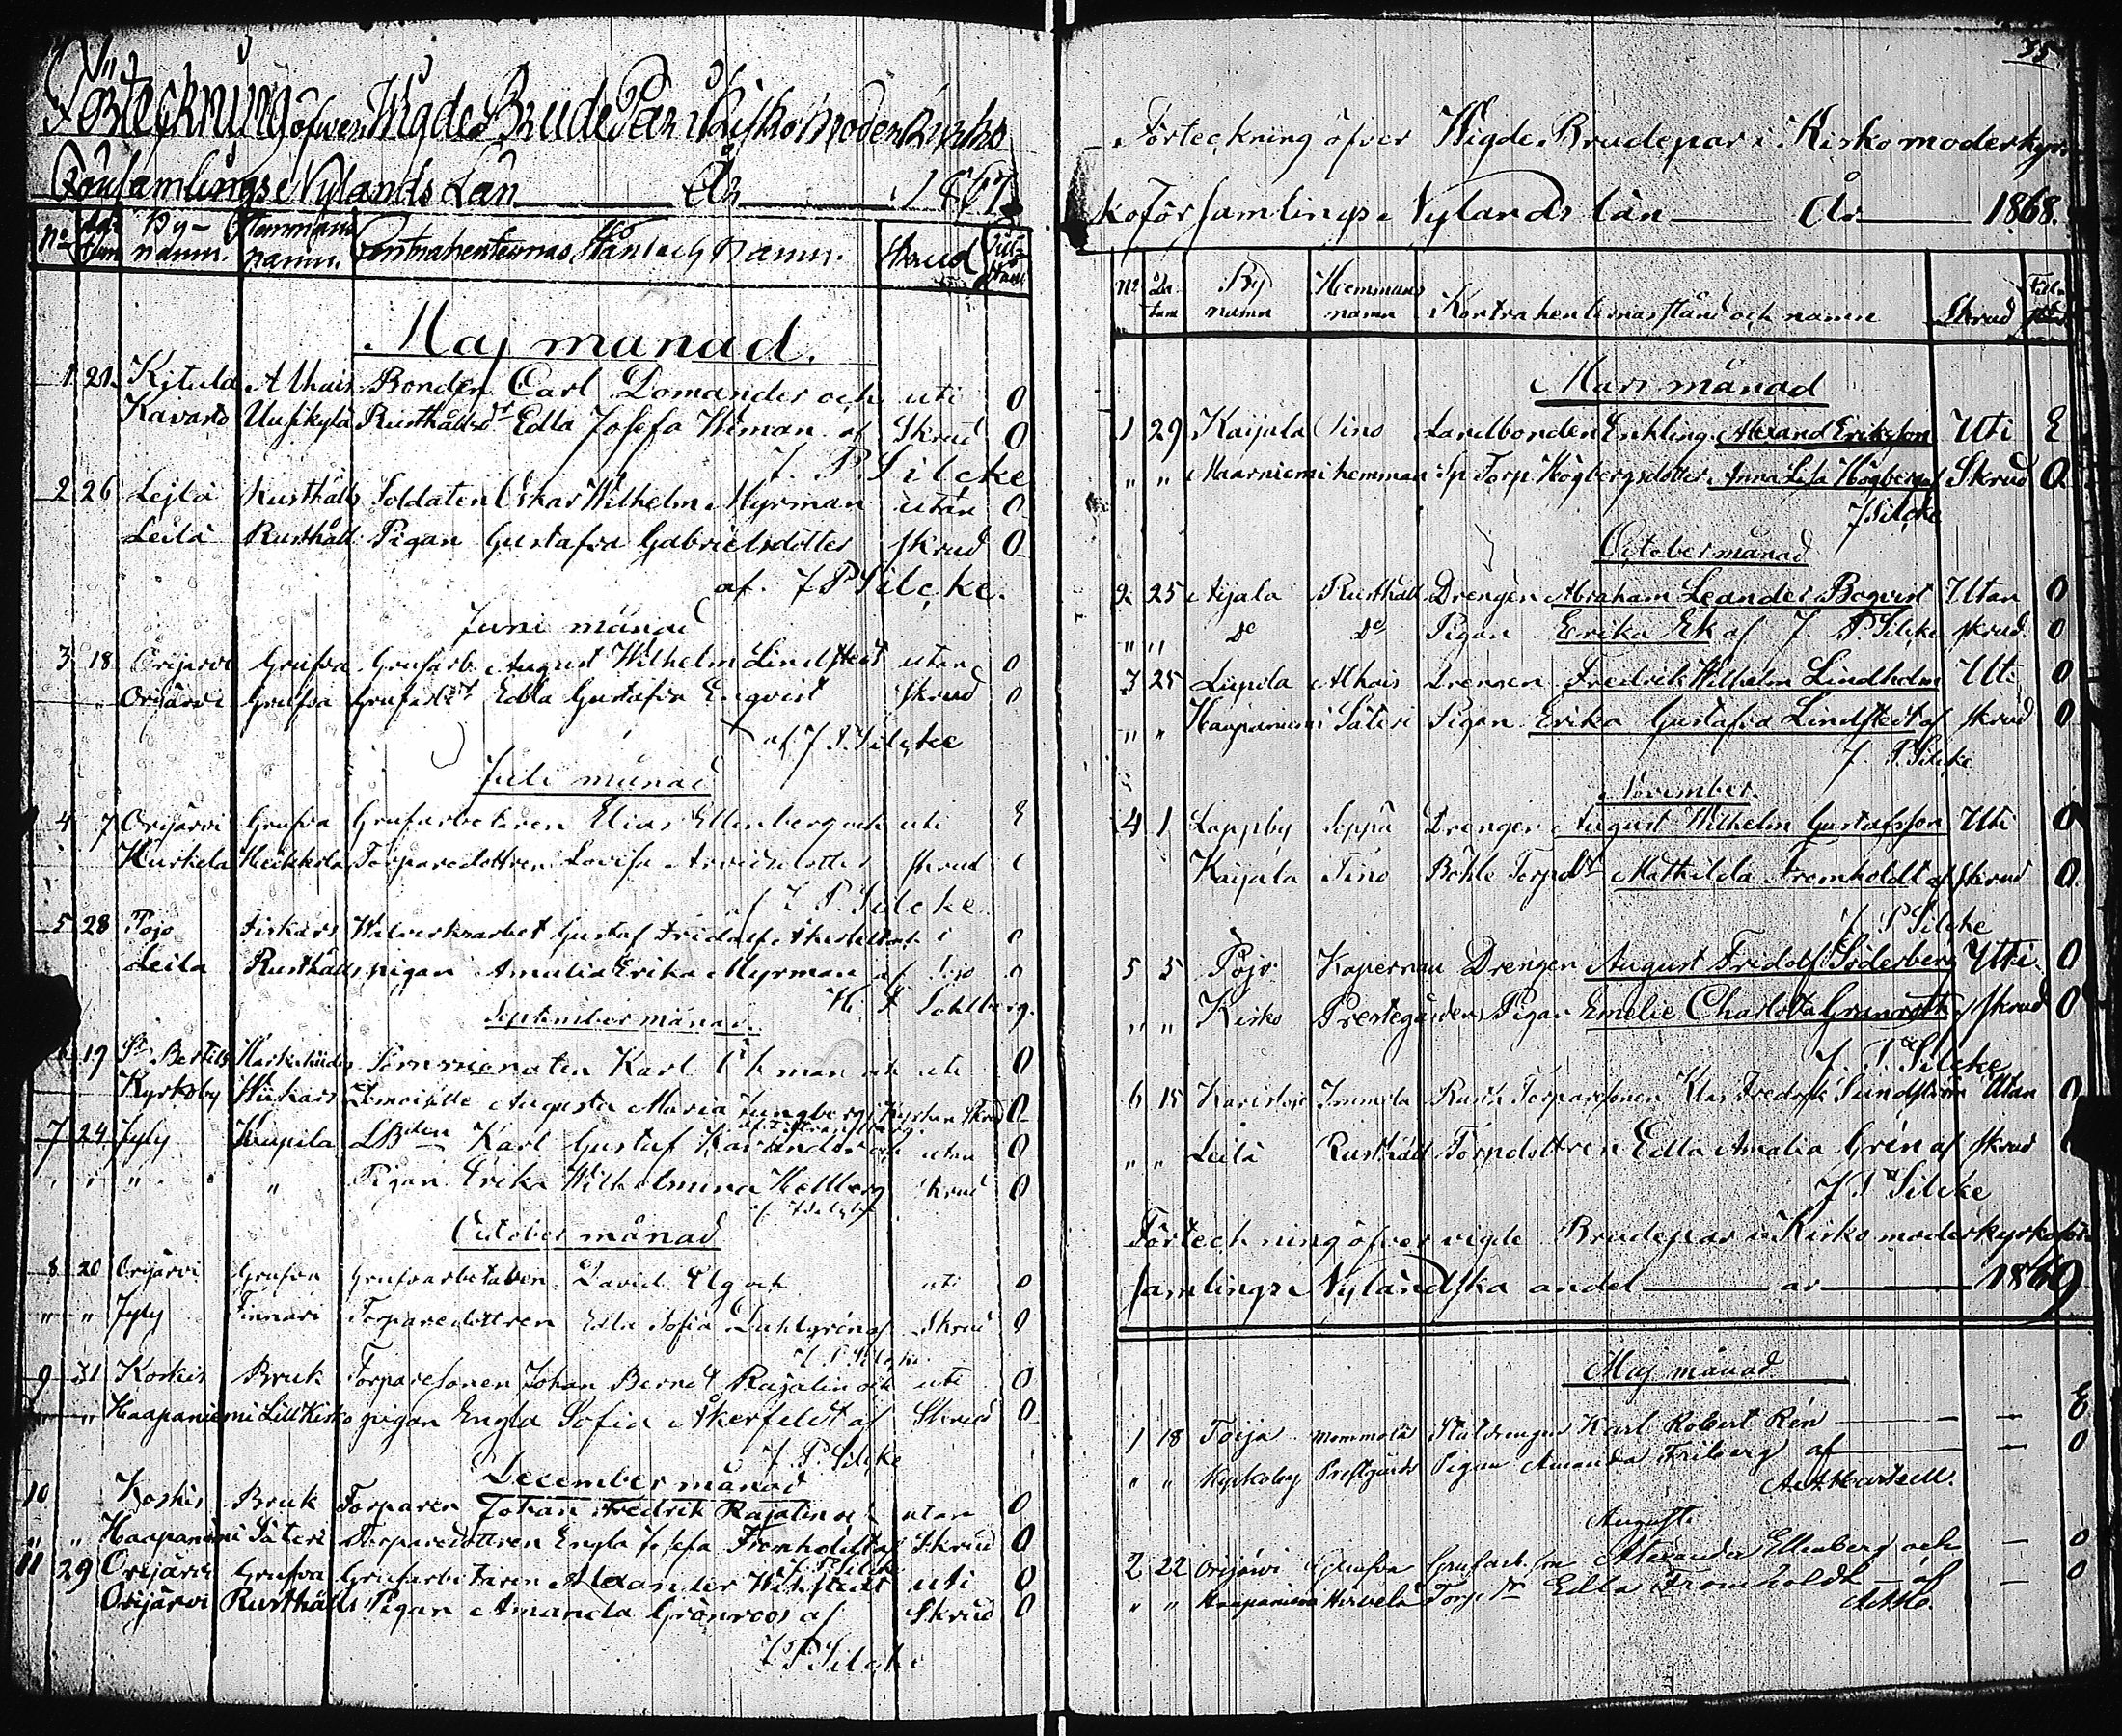 Förteckning öfver Wigde Brude Par i Kisko Moder Kyrko
Församlings Nylands Län År 1867
No Datum By-namn. Hemmans namn. Contrahenternas Stånd och Namn. Skrud Till-stånd
Maj månad.
1 21 Kitula Alhais Bonden Carl Domander och uti O
Kavasto Uusikylä Rusthålls dr Edla Josefa Wiman af Skrud O
J. P. Silcke
2 26 Lejlä Rusthålls Soldaten Oskar Wilhelm Myrman utan O
Leilä Rusthåll Pigan Gustafva Gabrielsdotter skrud O
af. J P Silcke.
Juni månad
3 18 Orijärvi Grufva Grufarb. August Wilhelm Lindstedt utan O
Orijärvi Grufva Grufarb dr Edla Gustafva Enqvist skrud O
af J. P. Silcke
Juli månad
4 7 Orijärvi Grufva Grufarbetaren Elias Ellenberg och uti E
Kurkela Heikkola Torparedottren Lovisa Arvidsdotter skrud
af J P Silcke
5 28 Pojo Fiskars Walsverksarbet Gustaf Fridolf i O
Leila Rusthålls pigan Amalia Erika Myrman af Pojo O
K. F Sohlberg.
September månad.
19 St Bertils Sommenaten Karl Öhman och uti O
Kyrkoby Demoiselle Augusta Maria Ljungberg Kyrkan Skrud O
7 24 Jyly Knapila LBden Karl Gustaf Karander och utan O
" " " " Pigan Erika Wilhelmina Hellberg Skrud O
October månad
8 20 Orijärvi Grufva Grufvarbetaren David Elg och uti O
" " Jyly Finnari Torparedottren Edla Sofia Dahlgrén af Skrud O
J P Silcke
9 31 Koskis Bruk Torparesonen Johan Bernet Rajalin och uti O
" " Haapaniemi Lill Kisko pigan Engla Sofia Åkerfeldt af Skrud O
J. P. Silcke
December månad
10 Koskis Bruk Torparen Johan Fredrik Rajalin och utan O
" " Haapaniemi Säteri Torparedottren Engla Josefa Fromholdt af Skrud O
J. P. Silcke
11 29 Orijärvi Grufva Grufarbetaren Alexander Wikstedt uti O
Orijärvi Rusthålls Pigan Amanda Grönroos af Skrud O
J P Silcke
35
Förteckning öfver Wigde Brudepar i Kisko moderkyr-
koförsamlings Nylands län År 1868.
No Datum By namn Hemmans namn Kontrahenternas stånd och namn Skrud Till-stånd
Mars månad
1 29 Kaijala Tino Landbonden Enkling Alexand Eriksson Uti E
" " Maarniemi hemman Sp Torp Högbergsdotter Anna Lisa Högberg af Skrud O
J Silcke
October månad
2 25 Aijala Rusthåll Drengen Abraham Leander Boqvist Utan O
" " Do Do Pigan Erika Ek af J. P Silcke skrud O
3 25 Liipola Alhais Drengen Fredrik Wilhelm Lindholm Uti O
" " Haapaniemi Säteri Pigan Erika Gustafva Lindstedt af skrud O
J. P. Silcke
November
4 1 Lappby Seppä Drengen August Wilhelm Gustafsson Uti O
Kaijala Tino Böhle Torp dr Mathilda Fromholdt af skrud O
J. P Silcke
5 5 Pojo Kapernau Drengen August Fridolf Söderberg Uti O
" " Kisko Prestegårdens Pigan Emelie Charlotta Granroth af skrud O
J. P. Silcke
6 15 Karislojo Immola Rusth Torparesonen Klas Fredrik Sundström Utan O
" " Leilä Rusthåll Torpdottren Edla Amalia Grén af skrud
J P Silcke
Förteckning öfver vigde Brudepar i Kisko moderkyrkoför-
samlings Nyländska andel år 1869
Maj månad
1 18 Toija Mommola Staldrengen Karl Robert Rén — — E
" " Kyrkoby Prestgårds Pigan Amanda Friberg af — — O
Augusti
2 22 Orijärvi Grufva Grufarb. son Alexander Ellenberg och — O
" " Haapaniemi Hirvelä Torp dr Edla Fromholdt — af — O